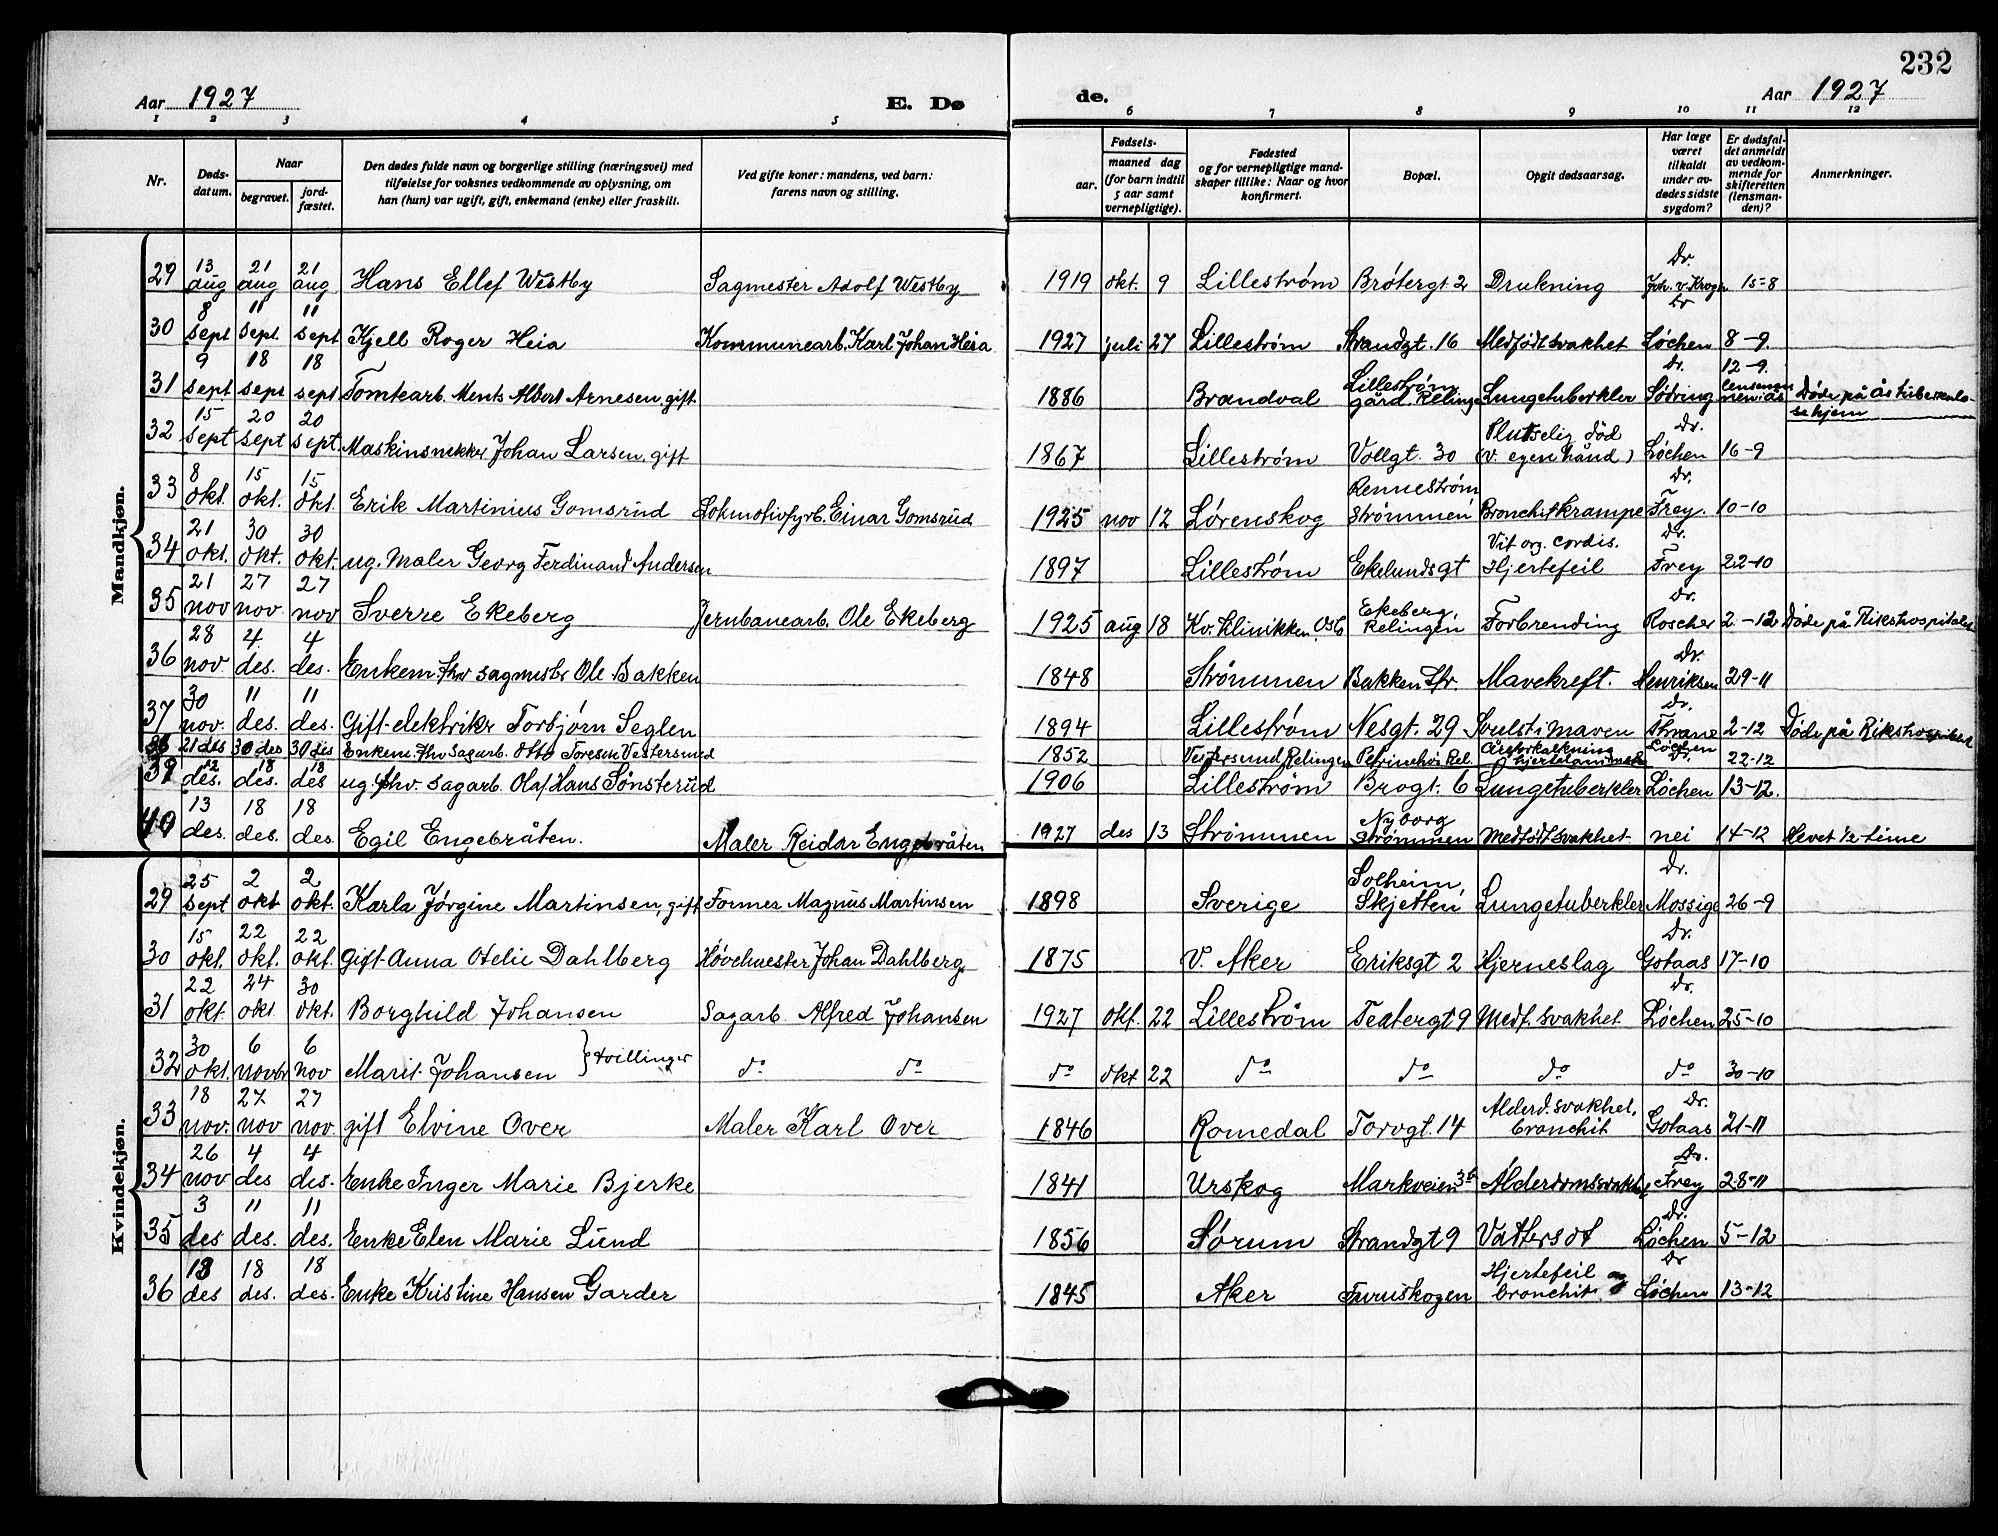 232
Aar 1927 E. Dø de. Aar 1927
1 2 3 4 5 6 7 8 9 10 11 12
Nr.
Døds-
datum.
Naar
begravet.
jord-
fæstet.
Den dødes fulde navn og borgerlige stilling (næringsvei) med
tilføielse for voksnes vedkommende av oplysning, om
han (hun) var ugift, gift, enkemand (enke) eller fraskilt.
Ved gifte koner: mandens, ved barn:
farens navn og stilling.
Fødsels-
aar.
maaned dag
(for barn indtil
5 aar samt
vernepligtige).
Fødested
og for vernepligtige mand-
skaper tillike: Naar og hvor
konfirmert.
Bopæl.
Opgit dødsaarsag.
Har læge
været
tilkaldt
under av-
dødes sidste
sygdom?
Er dødsfal-
det anmeldt
av vedkom-
mende for
skifteretten
(lensman-
den)?
Anmerkninger.
Mandkjøn.
29 13 aug 21 aug 21 aug Hans Ellef Westby Sagmester Adolf Westby 1919 okt. 9 Lillestrøm Brøtergt 2 Drukning Dr. Joh. v. Krogh 15-8
30 8 sept 11 sept. 11 sept Kjell Roger Heia Kommunearb. Karl Johan Heia 1927 juli 27 Lillestrøm Strandgt. 16 Medfødt svakhet Dr Løchen 8-9.
31 9 sept 18 sept 18 sept Tomtearb. Ments Albert Arnesen, gift 1886 Brandval Lillestrøm gård, Relinge Lungetuberkler Dr. Sødring 12-9. lensmannen i Ås Døde på Ås tuberkulosehjem
32 15 sept 20 sept 20 sept. Maskinsnekker Johan Larsen, gift 1867 Lillestrøm Vollgt. 30 Plutselig død (v. egen hånd) Dr. Løchen 16-9
33 8 okt. 15 okt. 15 okt. Erik Martinius Gomsrud Lokmotivfyrb. Einar Gomsrud 1925 nov 12 Lørenskog Rennestrøm Strømmen Bronchitkrampe Dr. Frey. 10-10
34 21 okt. 30 okt. 30 okt. ug. Maler Georg Ferdinand Andersen 1897 Lillestrøm Ekelundsgt Vit org. cordis. Hjertefeil Dr. Frey 22-10
35 21 nov 27 nov. 27 nov Sverre Ekeberg Jernbanearb. Ole Ekeberg 1925 aug 18 Kv. klinikken Oslo Ekeberg, Relingen Forbrending Dr. Roscher 2-12 Døde på Rikshospitalet
36 28 nov. 4 des. 4 des. Enkem. fhv sagmestr Ole Bakken 1848 Strømmen Bakken Str. Mavekreft. Dr. Henriksen 29-11
37 30 nov. 11 des. 11 des. Gift elektriker Torbjørn Seglen 1894 Lillestrøm Nesgt. 29 Svulst i maven Dr. Thrane 2-12 Døde på Rikshospitalet
38 21 des 30 des 30 des Enkem. fhv Sagarb. Otto Toresen Vestersund 1852 Vestersund Relingen Petrinehøi Rel. Åreforkalkning hjertelammelse Løchen 22-12
39 12 des. 18 des. 18 des ug. fhv. sagarb. Olaf Hans Sønsterud 1906 Lillestrøm Brogt. 6 Lungetuberkler Dr. Løchen 13-12.
40 13 des. 18 des. 18 des. Egil Engebråten. Maler Reidar Engebråten 1927 des 13 Strømmen Nyborg Strømmen Medfødt svakhet nei 14-12 Levet ½ time
Kvindekjøn.
29 25 sept 2 okt 2 okt. Karla Jørgine Martinsen, gift Former Magnus Martinsen 1898 Sverige Solheim, Skjetten Lungetuberkler Dr. Mossige 26-9
30 15 okt. 22 okt. 22 okt. Gift Anna Otelie Dahlberg Høvelmester Johan Dahlberg 1875 V. Aker Eriksgt 2 Hjerneslag Dr. Gotaas 17-10
31 22 okt. 24 okt 30 okt. Borghild Johansen Sagarb. Alfred Johansen 1927 okt. 22 Lillestrøm Teatergt 9 Medf. svakhet Dr. Løchen 25-10
32 30 okt. 6 novbr 6 nov Marit Johansen } tvillinger do do do okt 22 do do do do 30-10
33 18 nov. 27 nov 27 nov. gift Elvine Over Maler Karl Over 1846 Romedal Torvgt. 14 Alderd. svakhet, bronchit Dr. Gotaas 21-11
34 26 nov 4 des 4 des. Enke Inger Marie Bjerke 1841 Urskog Markveien 36 Alderdomssvakhet Dr. Frey 28-11
35 3 des 11 des. 11 des. Enke Elen Marie Lund 1856 Sørum Strandgt 9 Vattersot Dr. Løchen 5-12
36 13 des 18 des. 18 des. Enke Kristine Hansen Garder 1845 Aker Furuskogen Hjertefeil og bronchit Dr Løchen 13-12